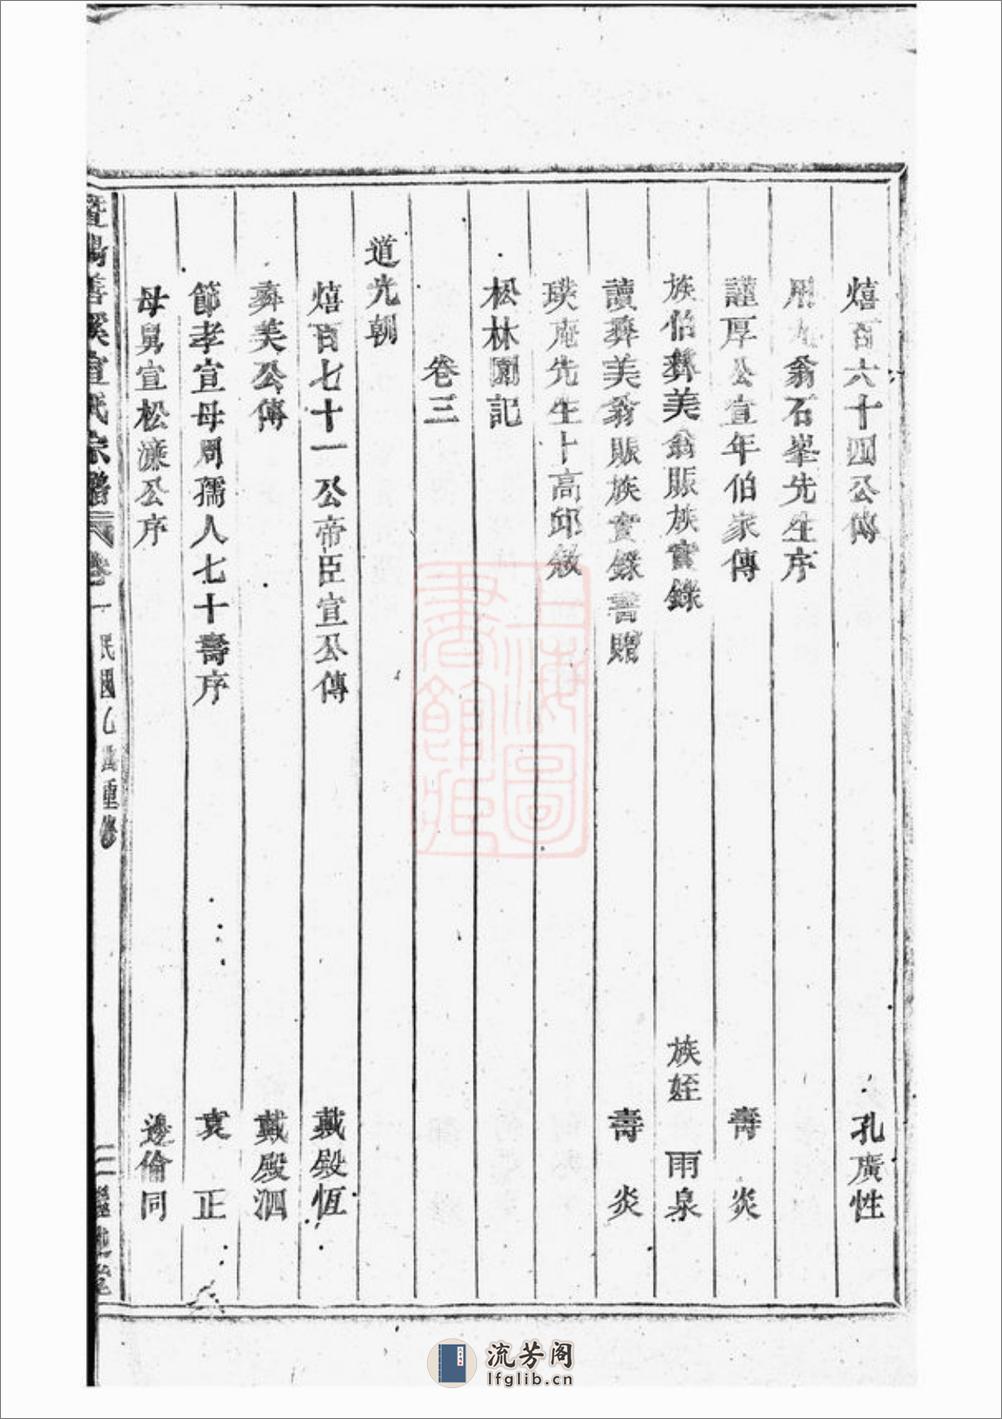 熺百六十四公傳 孔廣性
用九翁石峯先生序
謹厚公宣年伯家傳 壽炎
族伯彝美翁賑族實錄 族姪 雨泉
讀彝美翁賑族實錄書贈 壽炎
璞庵先生卜高邱敘
松林園記
卷三
道光朝
熺百七十一公帝臣宣公傳 戴殿恆
彝美公傳 戴殿泗
節孝宣母周孺人七十壽序 袁正
母舅宣松濂公序 邊倫同
暨陽善溪宣氏宗譜 卷一 民國乙丑重修 繼述堂
上海圖書館藏
流芳阁
lfglib.cn